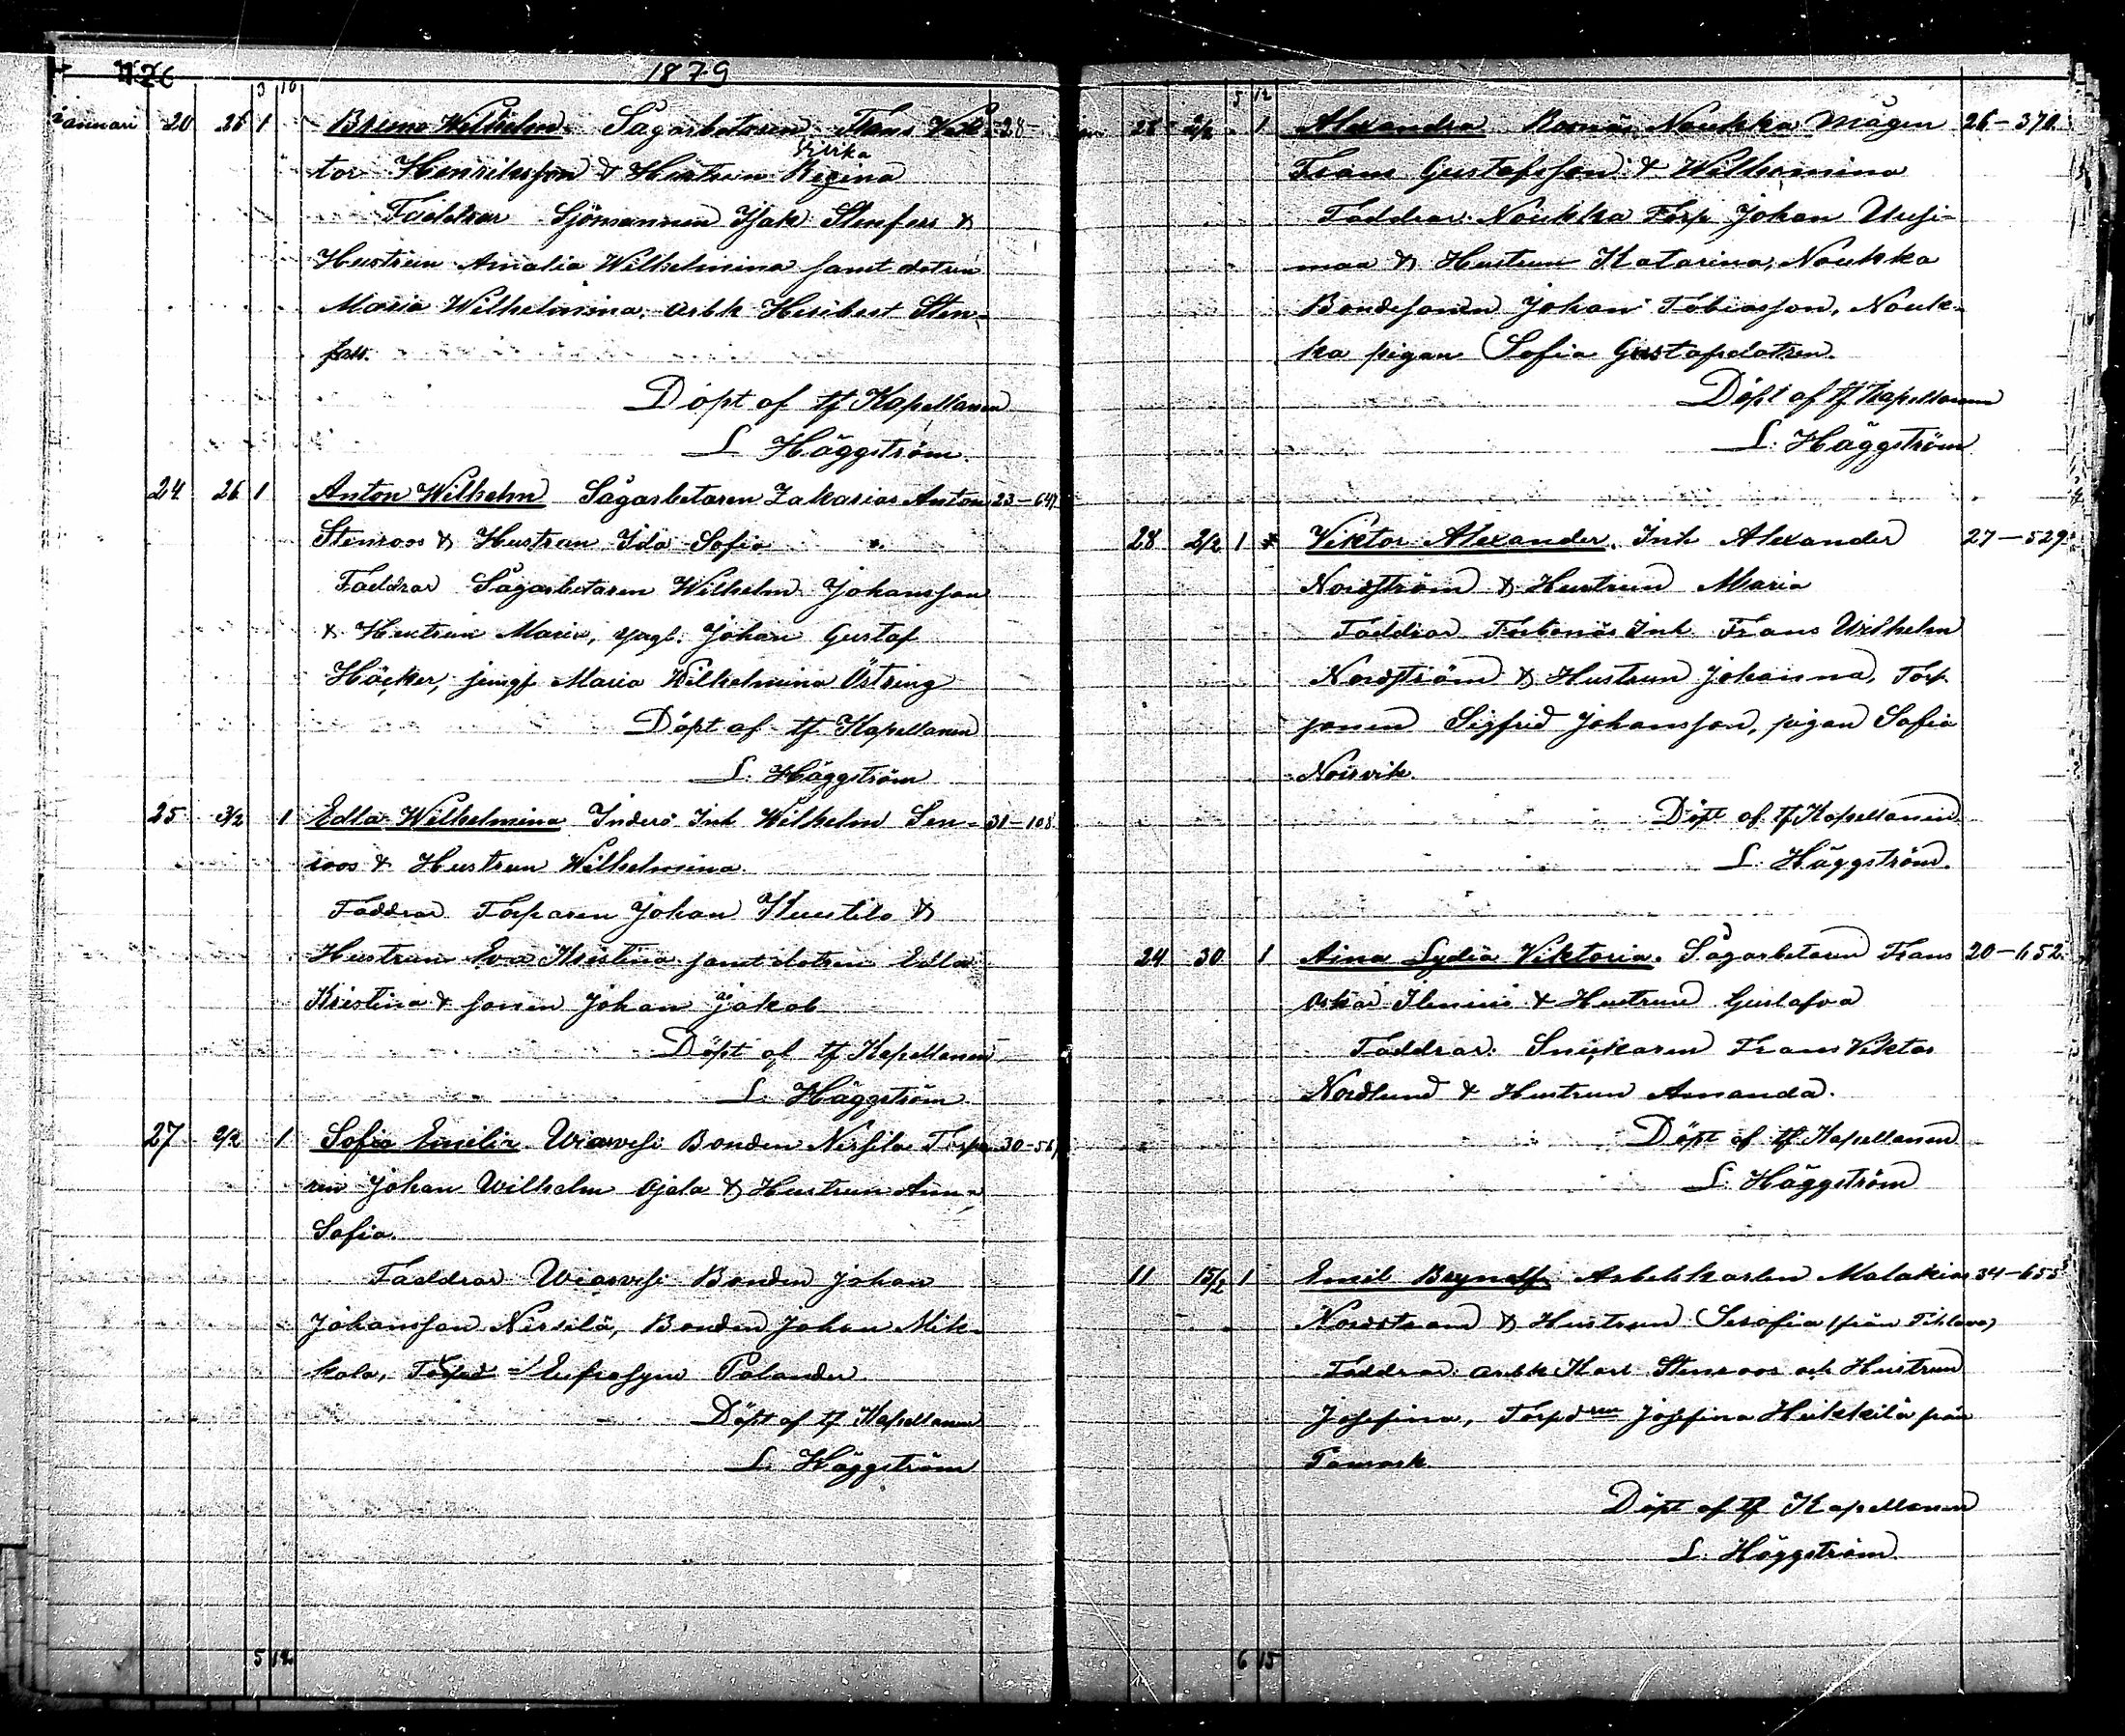 1879
3 10
Januari 20 26 1 Bruno Wilhelm. Sågarbetaren Frans Vik- 28-
Ulrika
tor Henriksson & Hustrun Regina
Faddrar Sjömannen Isak Stenfors &
Hustrun Amalia Wilhelmina samt dotren
Maria Wilhelmina, arbk Heribert Sten-
fors.
Döpt af tf Kapellanen
L Häggström.
24 26 1 Anton Wilhelm Sågarbetaren Zakarias Anton 23-647
Stenroos & Hustrun Ida Sofia
Faddrar Sågarbetaren Wilhelm Johansson
& Hustrun Maria, yngl. Johan Gustaf
Höcker, jungf Maria Wilhelmina Östring
Döpt af tf Kapellanen
L. Häggström
25 3/2 1 Edla Wilhelmina Inderö Inh Wilhelm Sen- 31-108
roos & Hustrun Wilhelmina.
Faddrar Torparen Johan Kuustilo &
Hustrun Eva Kristina samt dotren Edla
Kristina & sonen Johan Jakob
Döpt af tf Kapellanen
L. Häggström
27 2/2 1 Sofia Emilia Wiasvesi Bonden Nissila Torpa- 30-56
ren Johan Wilhelm Ojala & Hustrun Anna
Sofia.
Faddrar Wiasvesi Bonden Johan
Johansson Nissilä, Bonden Johan Mik-
kola, Eufrosyne Polander.
Döpt af tf Kapellanen
L. Häggström
5 12
5 12
28 2/2 1 Alexandra Rosnäs Noukka Mågen 26-370.
Frans Gustafsson & Wilhelmina
Faddrar: Noukka Torp Johan Uusi-
maa & Hustrun Katarina, Noukka
Bondesonen Johan Tobiasson, Nouk-
ka pigan Sofia Gustafsdotren.
Döpt af tf Kapellanen
L. Häggström
28 2/2 1 * Viktor Alexander. Inh Alexander 27-529
Nordström & Hustrun Maria
Faddrar Inh Frans Wilhelm
Nordström & Hustrun Johanna, Torp.
sonen Sigfrid Johansson, pigan Sofia
Norrvik.
Döpt af tf Kapellanen
L. Häggström.
24 30 1 Aina Lydia Viktoria. Sågarbetaren Frans 20-652
Oskar Ilenius & Hustrun Gustafva
Faddrar: Snickaren Frans Viktor
Nordlund & Hustrun Amanda.
Döpt af tf Kapellanen
L. Häggström
11 15/2 1 Emil Brynolf Arbetskarlen Malakias 34-655
Nordstrand & Hustrun Serafia (från
Faddrar: arbk Karl Stenroos och Hustrun
Josefina, Torpdren Josefina Heikkilä från
Tamark.
Döpt af tf Kapellanen
L. Häggström.
6 15